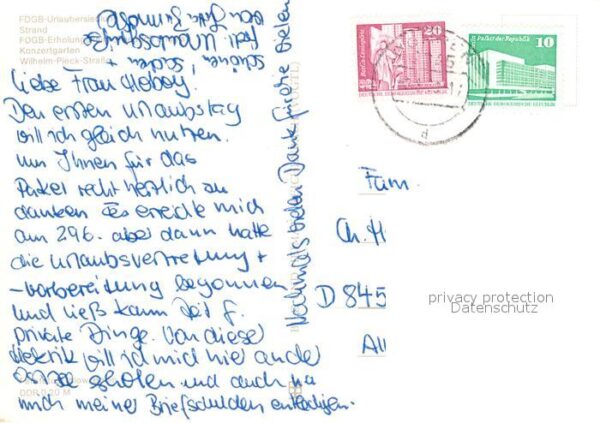 FDGB-Urlaubersiedlung
Strand
FDGB-Erholungs
Konzertgarten
Wilhelm-Pieck-Straße
Liebe Frau Heboy.
Den ersten Urlaubstag
will ich gleich nutzen.
um Ihnen für das
Paket recht herzlich zu
danken. Es erreichte mich
am 29.6. aber dann hatte
die Urlaubsvertretung +
-vorbereitung begonnen
und ließ kaum Zeit f.
private Dinge. Von dieser
Hektik will ich mich hier an der
Ostsee erholen und auch
mich meiner Briefschulden entledigen.
Nochmals vielen Dank für die vielen
schönen Socken
20
10
Palast der Republik
Fam
Ch. H
D 845
Au
privacy protection
Datenschutz